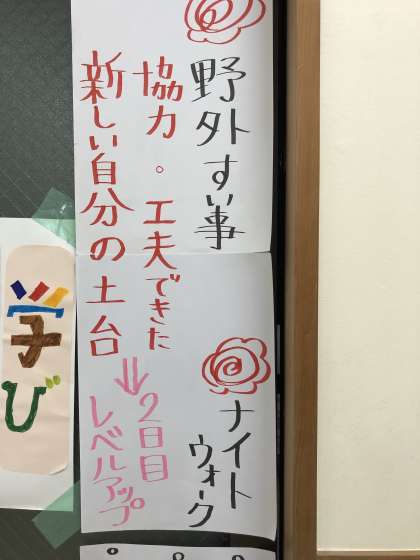 野外すい事
協力。工夫できた
新しい自分の土台
⇒2日目
レベルアップ
ナイト
ウォーク
学び